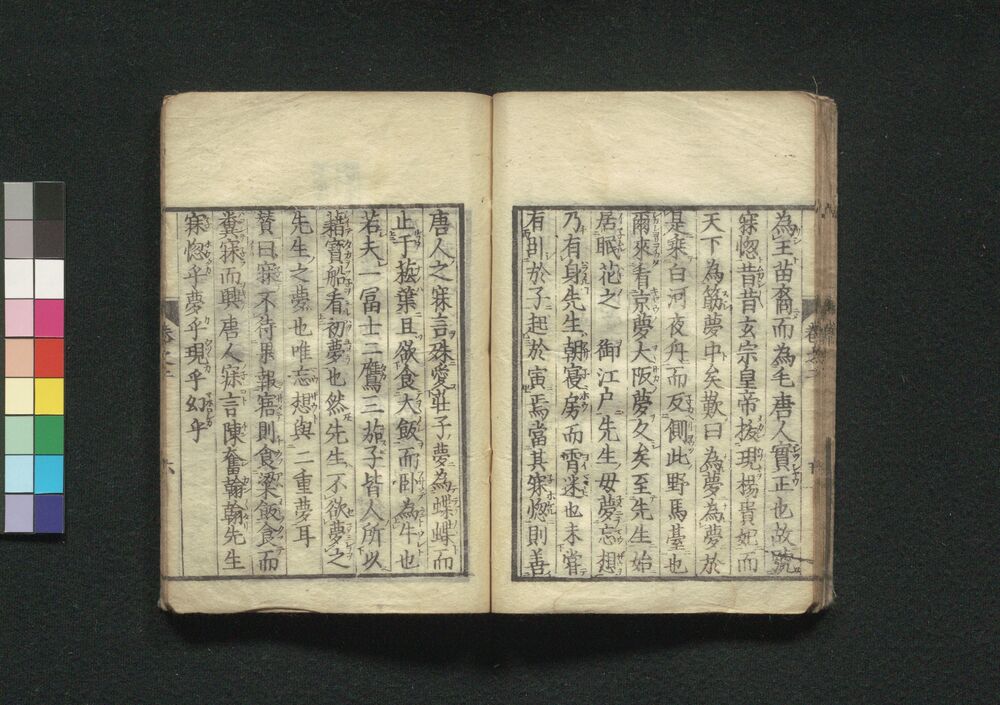 為王苗裔而為毛唐人實正也故號
寐惚昔昔玄宗皇帝拔現楊貴妃而
天下為筋夢中矣歎曰為夢為夢於
是乘白河夜舟而反側此野馬臺也
爾來看京夢大阪夢久矣至先生始
居眠花之 御江戶先生母夢忘想
乃有身先生朝寢房而宵迷也未嘗
有刮於子起於寅焉當其寐惚則善
唐人之寐言殊愛莊子夢為蝶蝴而
止于菰葉且欲食大飯而卧為牛也
若夫一冨士二鷹三茄子皆人所以
藉寶船看初夢也然先生不欲夢之
先生之夢也唯忘想與二重夢耳
贊曰寐不待果報寤則食粱飯食而
糞寐而興唐人寐言陳奮翰翰先生
寐惚乎夢乎現乎幻乎